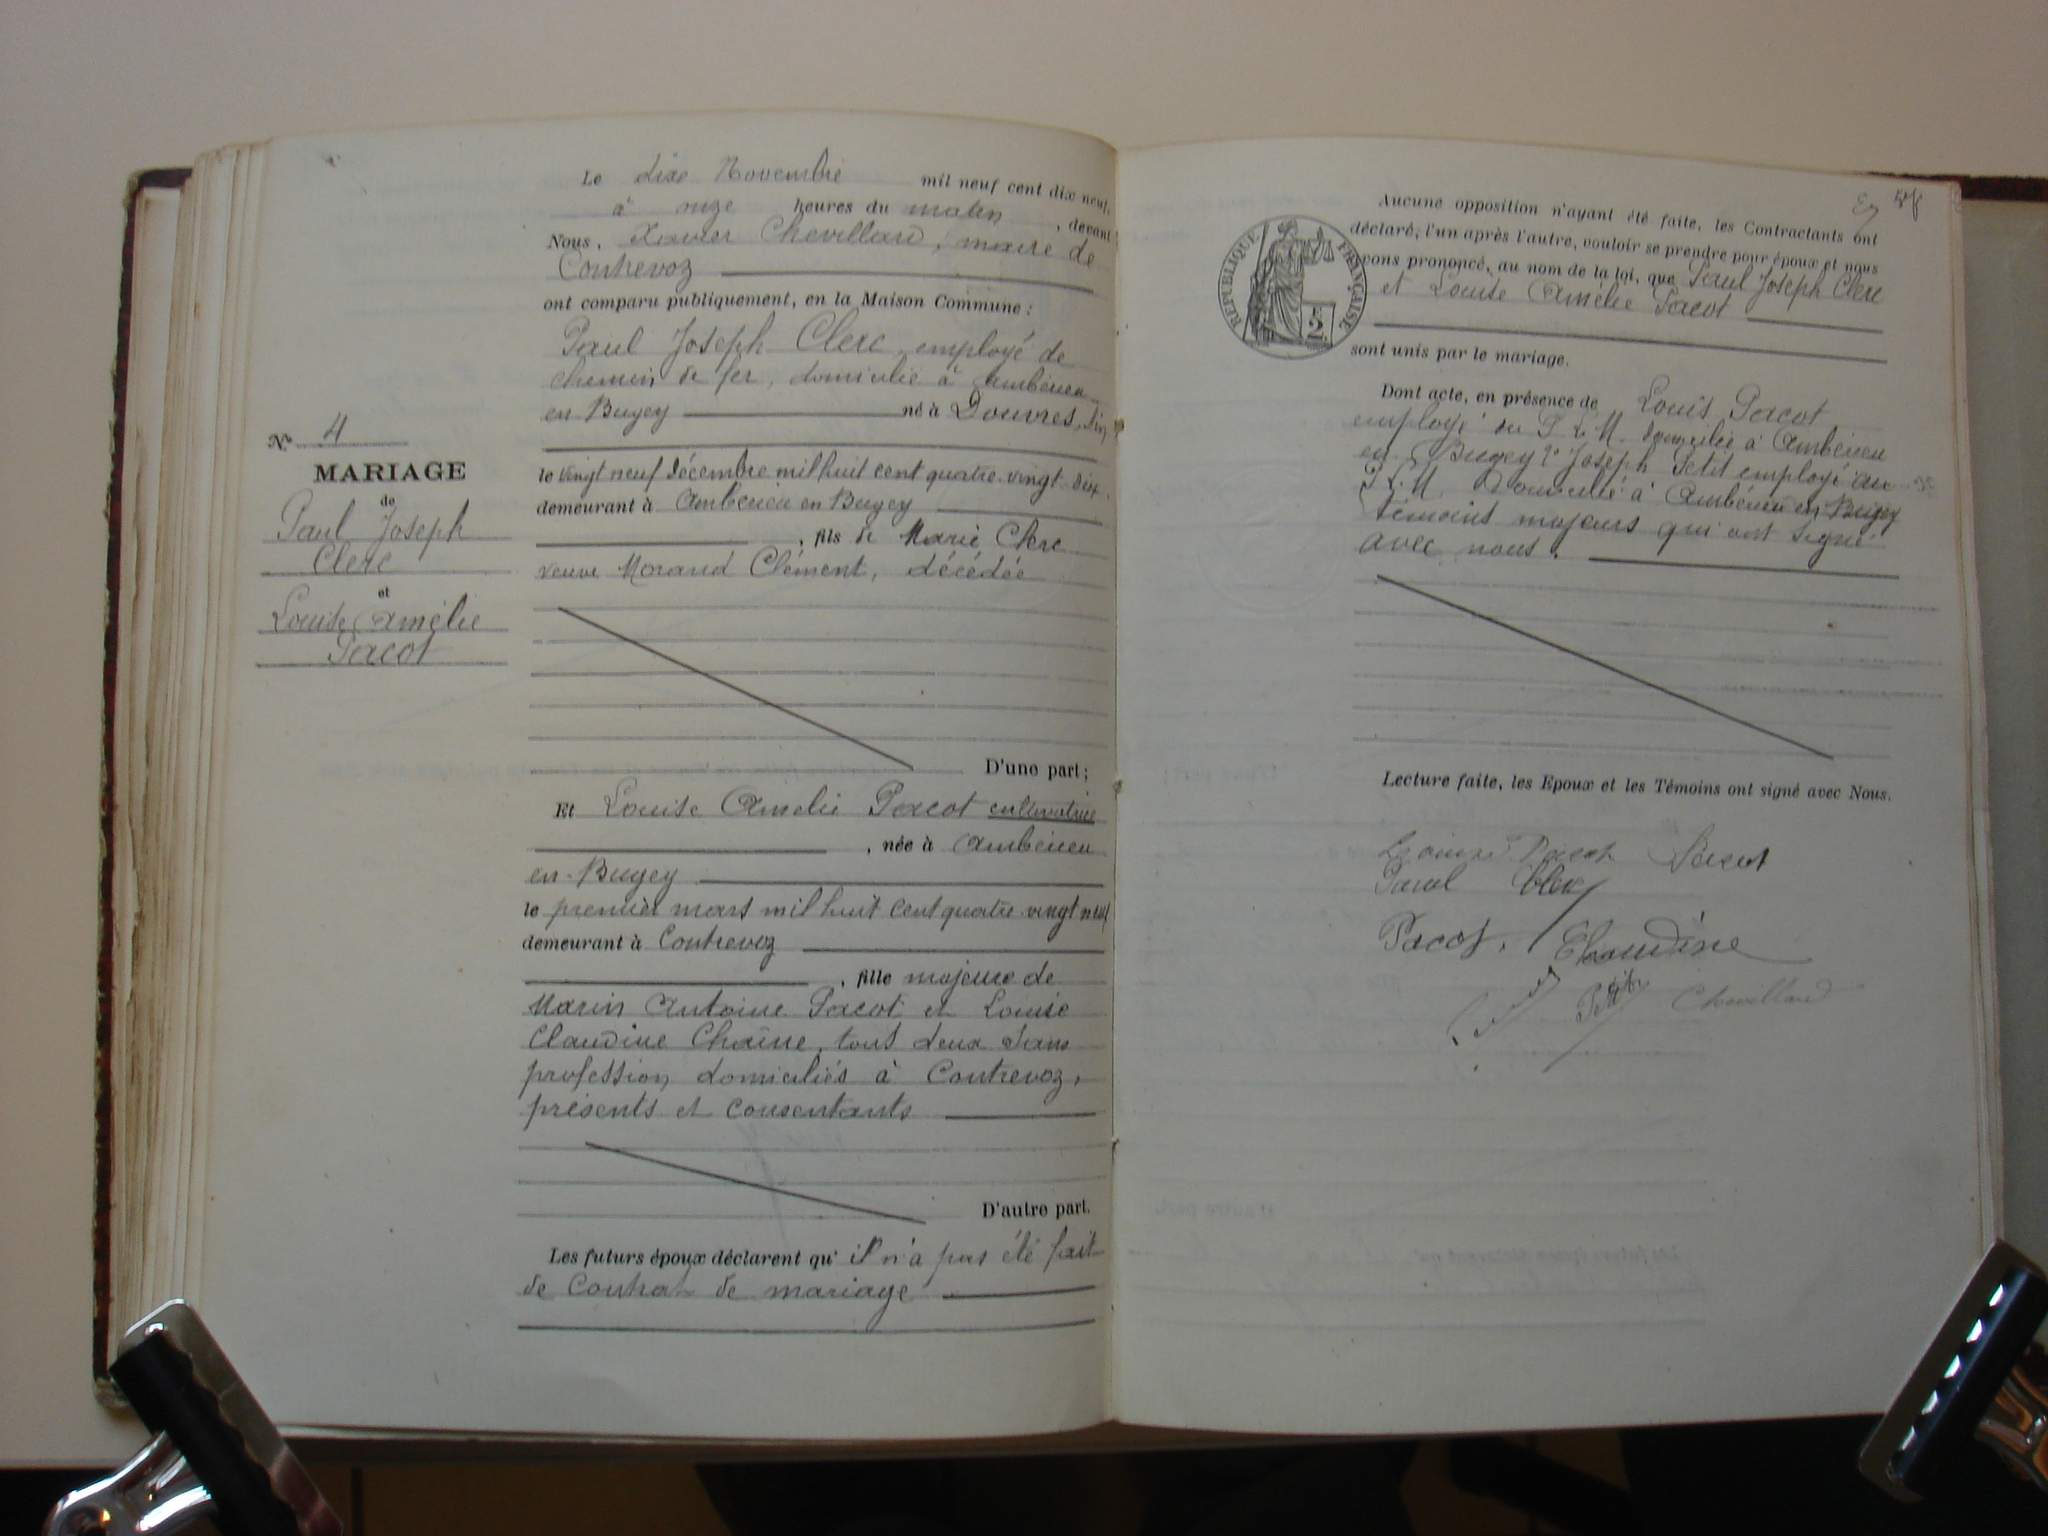 Le dix Novembre mil neuf cent dix neuf,
à onze heures du matin, devant
Nous, Xavier Chevillard, maire de
Contrevoz
ont comparu publiquement, en la Maison Commune :
Paul Joseph Clerc, employé de
chemin de fer, domicilié à Ambérieu
en Bugey né à Douvres, Ain
le vingt neuf Décembre mil huit cent quatre-vingt-dix
demeurant à Ambérieu en Bugey
, fils de Marie Clerc
veuve Morand Clément, décédée
Nº 4
MARIAGE
de
Paul Joseph
Clerc
et
Louise Amélie
Pacot
D'une part;
Et Louise Amélie Pacot cultivatrice
, née à Ambérieu
en-Bugey
le premier mars mil huit cent quatre vingt neuf
demeurant à Contrevoz
, fille majeure de
Marin Antoine Pacot et Louise
Claudine Chaîne, tous deux sans
profession domiciliés à Contrevoz,
présents et consentants
D'autre part.
Les futurs époux déclarent qu' il n'a pas été fait
de Contrat de mariage
Aucune opposition n'ayant été faite, les Contractants ont
déclaré, l'un après l'autre, vouloir se prendre pour époux et nous
avons prononcé, au nom de la loi, que Paul Joseph Clerc
et Louise Amélie Pacot
sont unis par le mariage.
RÉPUBLIQUE FRANÇAISE
Dont acte, en présence de Louis Pacot
employé du P.L.M. domicilié à Ambérieu
en Bugey 2º Joseph Petit employé au
P.L.M. Domicilié à Ambérieu en Bugey
témoins majeurs qui ont signé
avec nous.
Lecture faite, les Epoux et les Témoins ont signé avec Nous.
Louise Pacot Pacot
Paul Clerc
Pacot. Chaudine
Petit Chevillard